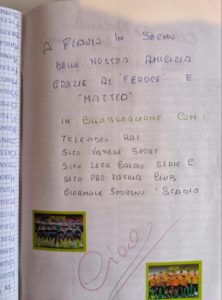 A FLAVIO IN SECNO
DELLA NOSTRA AMICIZIA
GRAZIE AL "FEROCE" E
"MATTEO"
IN COLLABORAZIONE CON:
TELEVIDEO RAI
SITO VARESE SPORT
SITO LEGA CALCIO SERIE C
SITO PRO PATRIA CLUB
GIORNALE SPORTIVO "STADIO
Ciao